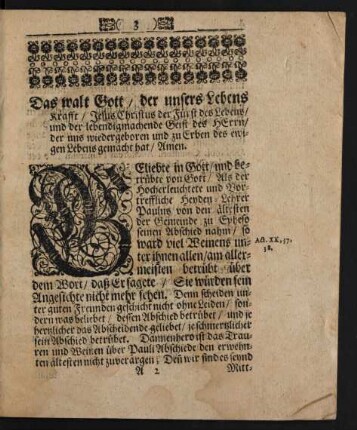 3
Das walt Gott / der unsers Lebens
Krafft / Jesus Christus der Fürst des Lebens /
und der lebendigmachende Geist des HErrn /
der uns wiedergeboren und zu Erben des ewi-
gen Lebens gemacht hat / Amen.
GEliebte in Gott / und be-
trübte von Gott / Als der
Hocherleuchtete und Vor-
treffliche Heyden Lehrer
Paulus von den ältesten
der Gemeinde zu Epheso
seinen Abschied nahm / so
ward viel Weinens un-
ter ihnen allen / am aller-
meisten betrübt über
Act. XX. 37.
38.
dem Wort / daß Er sagete / Sie würden sein
Angesichte nicht mehr sehen. Denn scheiden un-
ter guten Freunden geschicht nicht ohne Leiden / son-
dern was beliebet / dessen Abschied betrübet / und je
hertzlicher das Abscheidende geliebet / je schmertzlicher
sein Abschied betrübet. Dannenhero ist das Trau-
ren und Weinen über Pauli Abschiede den erwehn-
ten ältesten nicht zuverargen; Deñ wir sind es seynd
A 2
Mitt-